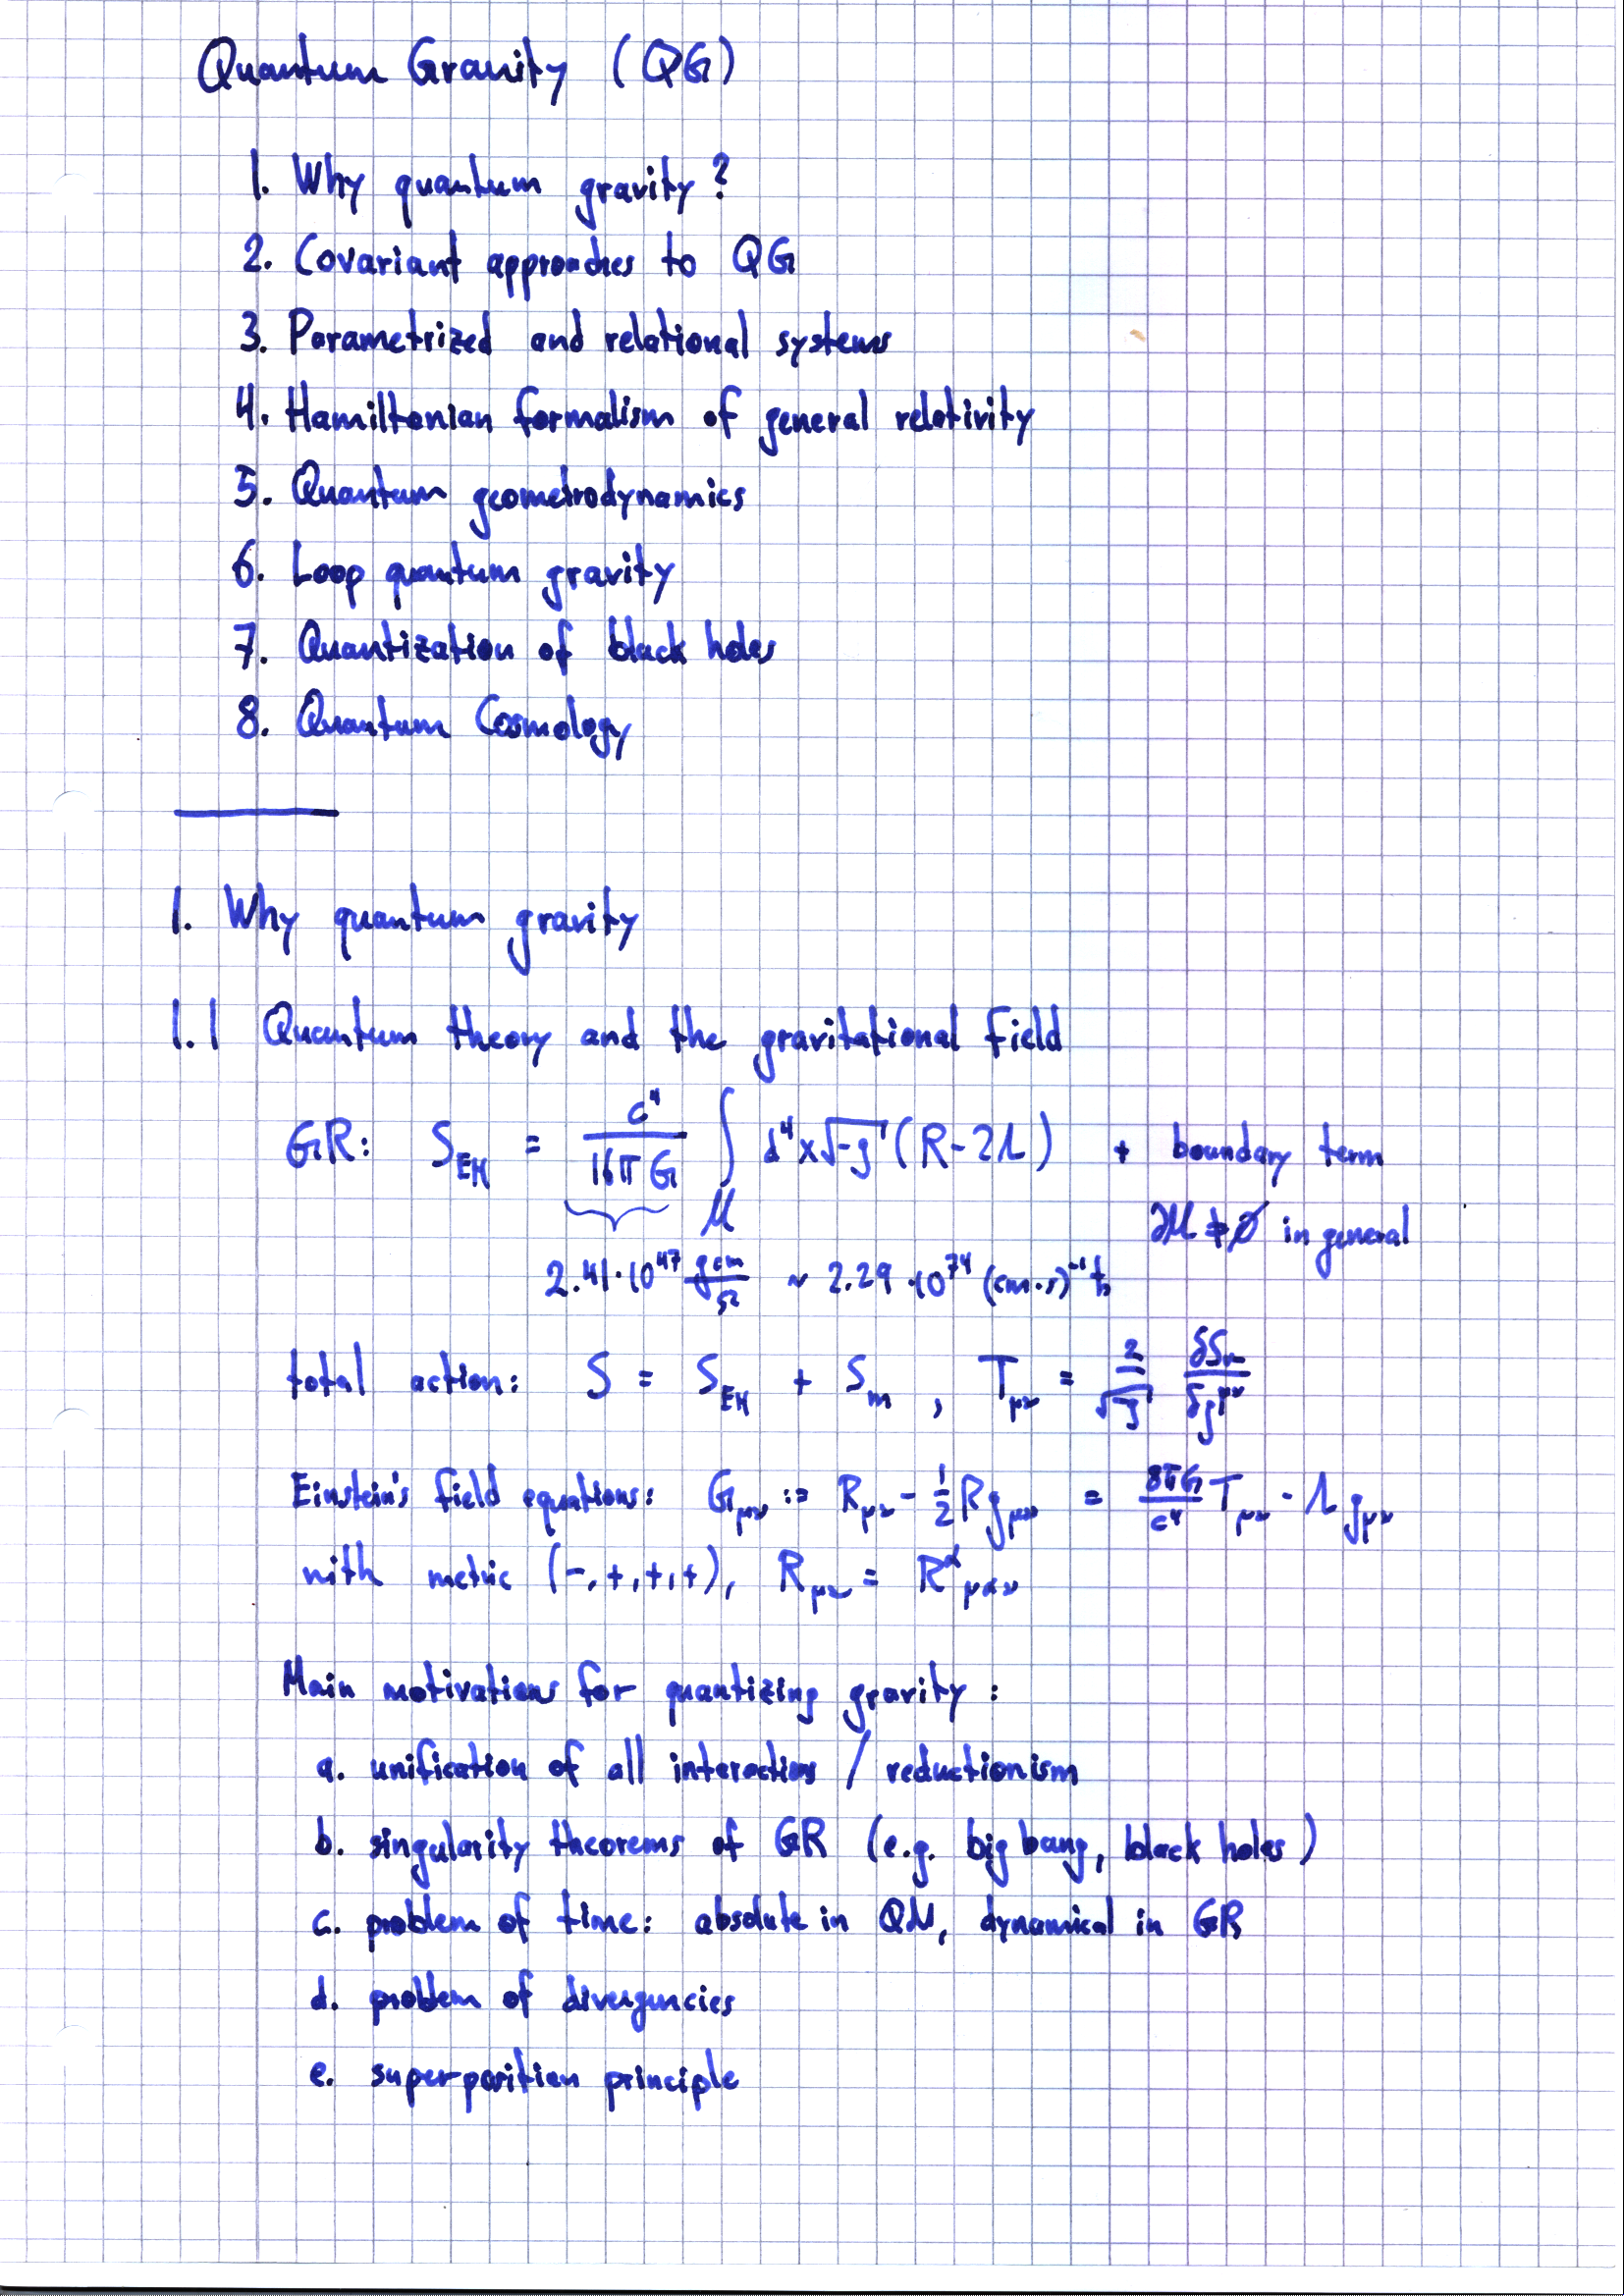 Quantum Gravity (QG)
1. Why quantum gravity?
2. Covariant approaches to QG
3. Parametrized and relational systems
4. Hamiltonian formalism of general relativity
5. Quantum geometrodynamics
6. Loop quantum gravity
7. Quantization of black holes
8. Quantum Cosmology
1. Why quantum gravity
1.1 Quantum theory and the gravitational field
GR: S_EH = c⁴/(16πG) ∫_M d⁴x √-g (R - 2Λ) + boundary term
∂M ≠ ∅ in general
2.41·10⁴⁷ g cm/s² ~ 2.29·10⁷⁴ (cm·s)⁻¹ ħ
total action: S = S_EH + S_m , T_μν = 2/√-g δS_m/δg^μν
Einstein's field equations: G_μν := R_μν - 1/2 R g_μν = 8πG/c⁴ T_μν - Λ g_μν
with metric (-,+,+,+), R_μν = R^α_μαν
Main motivations for quantizing gravity:
a. unification of all interactions / reductionism
b. singularity theorems of GR (e.g. big bang, black holes)
c. problem of time: absolute in QM, dynamical in GR
d. problem of divergencies
e. superposition principle